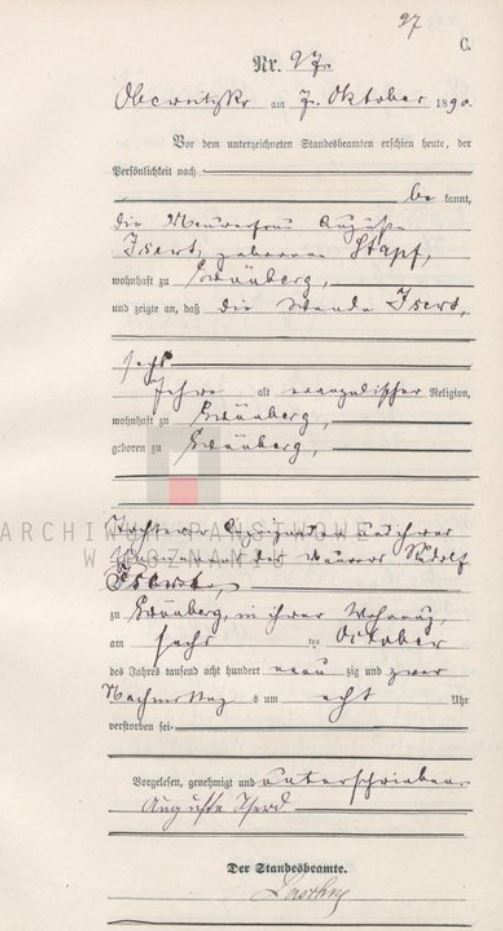 97
C.
Nr. 97.
Obersitzko am 7. Oktober 1890.
Vor dem unterzeichneten Standesbeamten erschien heute, der
Persönlichkeit nach
be kannt,
die Maurerfrau Auguste
Isert, geborene Stapf,
wohnhaft zu Grünberg,
und zeigte an, daß die Wanda Isert,
sechs
Jahre alt evangelischer Religion,
wohnhaft zu Grünberg,
geboren zu Grünberg,
ARCHIWUM PAŃSTWOWE
W POZNANIU
Tochter der
des Maurers Rudolf
zu Grünberg, in ihrer Wohnung,
am sechs ten October
des Jahres tausend acht hundert neun zig und
Nachmittag s um acht Uhr
verstorben sei.
Vorgelesen, genehmigt und unterschrieben
Auguste Iserd
Der Standesbeamte.